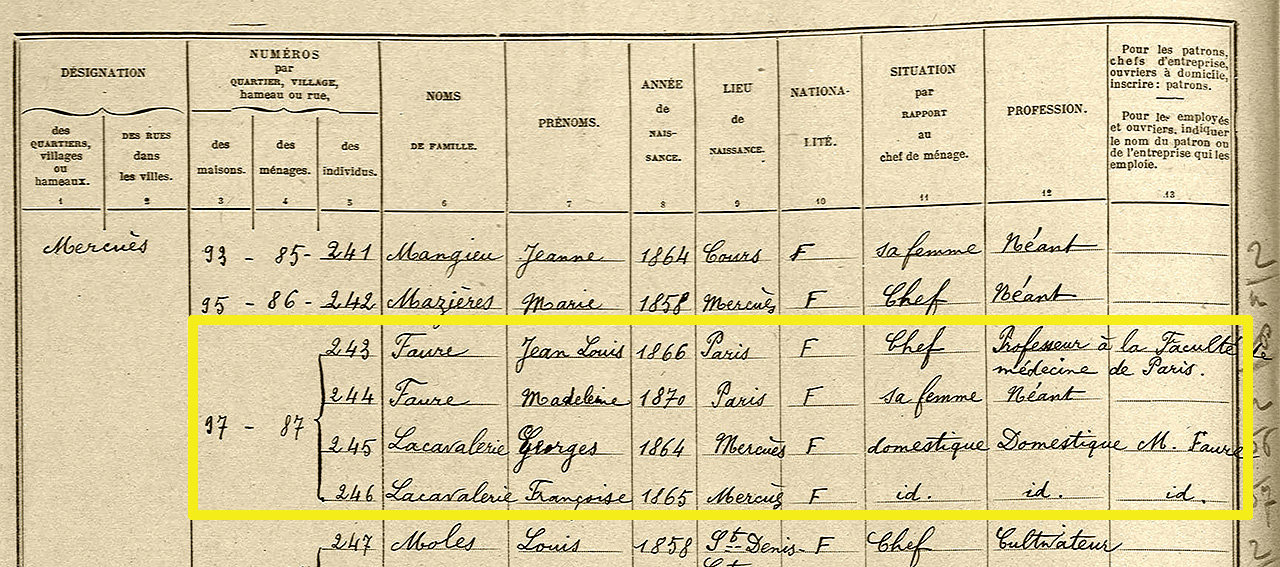 DÉSIGNATION
des QUARTIERS, villages ou hameaux.
DES RUES dans les villes.
NUMÉROS par QUARTIER, VILLAGE, hameau ou rue,
des maisons.
des ménages.
des individus.
NOMS DE FAMILLE.
PRÉNOMS.
ANNÉE de NAIS- SANCE.
LIEU de NAISSANCE.
NATIONA- LITÉ.
SITUATION par RAPPORT au chef de ménage.
PROFESSION.
Pour les patrons, chefs d'entreprise, ouvriers à domicile, inscrire: patrons.
Pour les employés et ouvriers, indiquer le nom du patron ou de l'entreprise qui les emploie.
1 2 3 4 5 6 7 8 9 10 11 12 13
Mercuès 93 - 85 - 241 Mangieu Jeanne 1864 Cours F sa femme Néant
95 - 86 - 242 Mazières Marie 1858 Mercuès F Chef Néant
243 Faure Jean Louis 1866 Paris F Chef Professeur à la Faculté de
médecine de Paris.
244 Faure Madeleine 1870 Paris F sa femme Néant
97 - 87
245 Lacavalerie Georges 1864 Mercuès F domestique Domestique M. Faure
246 Lacavalerie Françoise 1865 Mercuès F id. id. id.
247 Moles Louis 1858 St Denis- F Chef Cultivateur